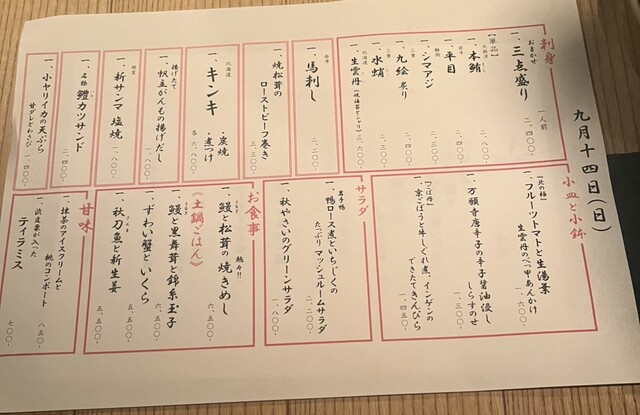 九月十四日(日)
刺身
おまかせ
一、三点盛り 一人前 二、四〇〇-
【単品】
一、本鮪 二、八〇〇-
一、平目
一、シマアジ
一、九絵 炙り
一、水蛸
北海道
一、生雲丹
一、馬刺し 二、二〇〇-
一、焼松茸の
ローストビーフ巻き 三、三〇〇-
北海道
一、キンキ ・炭焼
・煮つけ
各 六、八〇〇-
揚げたて
一、帆立がんもの揚げだし 一、八〇〇-
一、新サンマ 塩焼 一、八〇〇-
名物
一、鱧カツサンド 二、四〇〇-
一、小ヤリイカの天ぷら
甘ダレとわさび 一、四〇〇-
小皿と小鉢
『北の極』
一、フルーツトマトと生湯葉
生雲丹のべっ甲あんかけ 一、六〇〇-
一、万願寺唐辛子の辛子醤油浸し
しらすのせ 一、三〇〇-
『ごぼ丹』
一、京ごぼうと牛しぐれ煮、インゲンの
できたてきんぴら 一、四五〇-
サラダ
岩手鴨
一、鴨ロース煮といちじくの
たっぷりマッシュルームサラダ 二、二〇〇-
一、秋やさいのグリーンサラダ 一、八〇〇-
お食事
一、鰻と松茸の焼きめし 六、五〇〇-
《土鍋ごはん》
一、鰻と黒舞茸と錦糸玉子 六、五〇〇-
一、ずわい蟹といくら 五、五〇〇-
一、秋刀魚と新生姜 五、五〇〇-
甘味
一、抹茶のアイスクリームと
桃のコンポート 八五〇-
一、渋皮栗が入った
ティラミス 七〇〇-